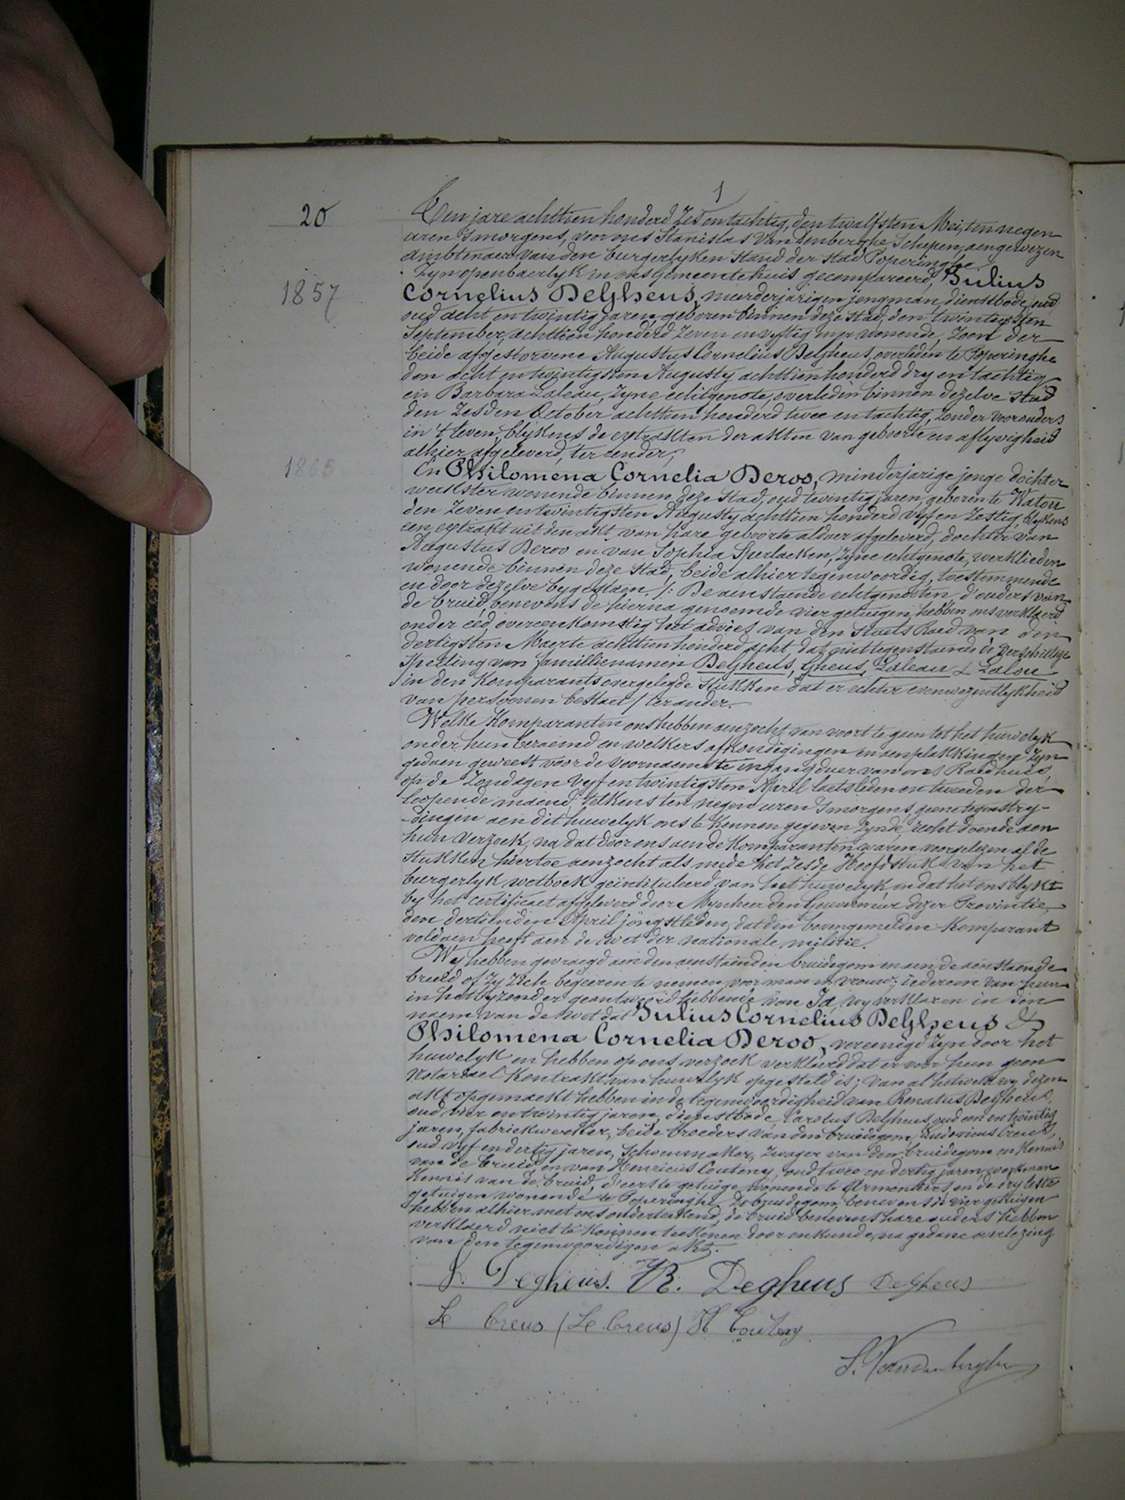 1
20
Den jare achttien honderd zes en tachtig, den twalfsten Mei, ten negen
uren 's morgens, voor ons Stanislas Vandenberghe, Schepen, aengewezen
ambtenaer van den burgerlyken stand der stad Poperinghe
Zyn openbaerlyk in ons gemeentehuis gecompareerd, Julius
1857
Cornelius Degheus, meerderjarigen jongman, dienstbode, oud
oud acht en twintig jaren, geboren binnen deze stad, den twintigsten
September, achttien honderd zeven en vyftig, wonende, zoon der
beide afgestorvene Augustus Cornelius Degheus, overleden te Poperinghe
den acht en twintigsten Augusty achttien honderd dry en tachtig
en Barbara Laleau, zyne echtgenote, overleden binnen dezelve stad
den zesden October achttien honderd twee en tachtig, zonder voorouders
in 't leven, blykens de extrakten der akten van geboorte en aflyvigheid
alhier afgeleverd, ter eender;
1865
En Philomena Cornelia Deroo, minderjarige jonge dochter
werkster wonende binnen deze stad, oud twintig jaren, geboren te Watou
den zeven en twintigsten Augusty achttien honderd vyf en zestig, blykens
een extrakt uit den akt van hare geboorte alhier afgeleverd, dochter van
Augustus Deroo en van Sophia zyne echtgenote, werklieden
wonende binnen deze stad, beide alhier tegenwoordig, toestemmende
en door dezelve bygestaen. De aenstaende echtgenoten, d'ouders van
de bruid, benevens de hierna genoemde vier getuigen, hebben ons verklaerd
onder eed, overeenkomstig het advies van den Staets Raed van den
dertigsten Maerte achttien honderd acht, dat niettegenstaende de verschillige
spelling van familienamen Degheus, Gheus, Laleau & Lalou
in den komparants overgelegde stukken dat er echter eenwezentlykheid
van persoonen bestaet / ter ander.
Welke komparanten ons hebben aenzocht van voort te gaen tot het huwelyk
onder hun beraemd en welkers afkondigingen en aenplakkingen zyn
gedaen geweest voor de voornaemste ingangdeur van ons Raedhuis,
op de Zondagen vyf en twintigsten April laetstleden en tweeden der
loopende maend, telkens ten negen uren 's morgens, geene tegenstry-
-dingen aen dit huwelyk ons te kennen gegeven zynde, recht doende aen
hun verzoek, na dat door ons aen de komparanten waren voorgelezen al de
stukken hiertoe aenzocht als mede het zesde Hoofdstuk van het
burgerlyk wetboek geintituleerd van het huwelyk en dat het ons blykt
by het certificaet afgeleverd door Mynheer den Gouverneur dezer Provintie
den dertienden April jongstleden, dat den bovengemelden komparant
voldaen heeft aen de wet der nationale militie.
Wy hebben gevraegd aen den aenstaenden bruidegom en aen de aenstaende
bruid of zy zich begeeren te nemen voor man en vrouw; iedereen van hun
in het byzonder geantwoord hebbende van Ja, wy verklaren in den
naem van de wet dat Julius Cornelius Degheus &
Philomena Cornelia Deroo, vereenigd zyn door het
huwelyk en hebben op ons verzoek verklaerd dat er voor hun geen
Notarieel kontrakt van huwelyk opgesteld is; van al hetwelk wy dezen
akt opgemaekt hebben in de tegenwoordigheid van Renatus Degheus,
oud vier en twintig jaren, dienstbode, Carolus Degheus oud een en twintig
jaren, fabriekwerker, beide broeders van den bruidegom, Ludovicus Creus,
oud vyf en dertig jaren, schoenmaker, zwager van den bruidegom en kennis
van de bruid, en van Henricus Couteny, oud twee en dertig jaren, werkman
kennis van de bruid, d'eerste getuige wonende te Armentiers, en de dry leste
getuigen wonende te Poperinghe. De bruidegom, benevens de vier getuigen
hebben alhier met ons onderteekend, de bruid benevens hare ouders hebben
verklaerd niet te konnen teekenen door onkunde, na gedane overlezing
van den tegenwoordigen akt.
J. Degheus. R. Degheus Degheus
Le Creus (Le Creus) H Couteny
S. Vandenberghe